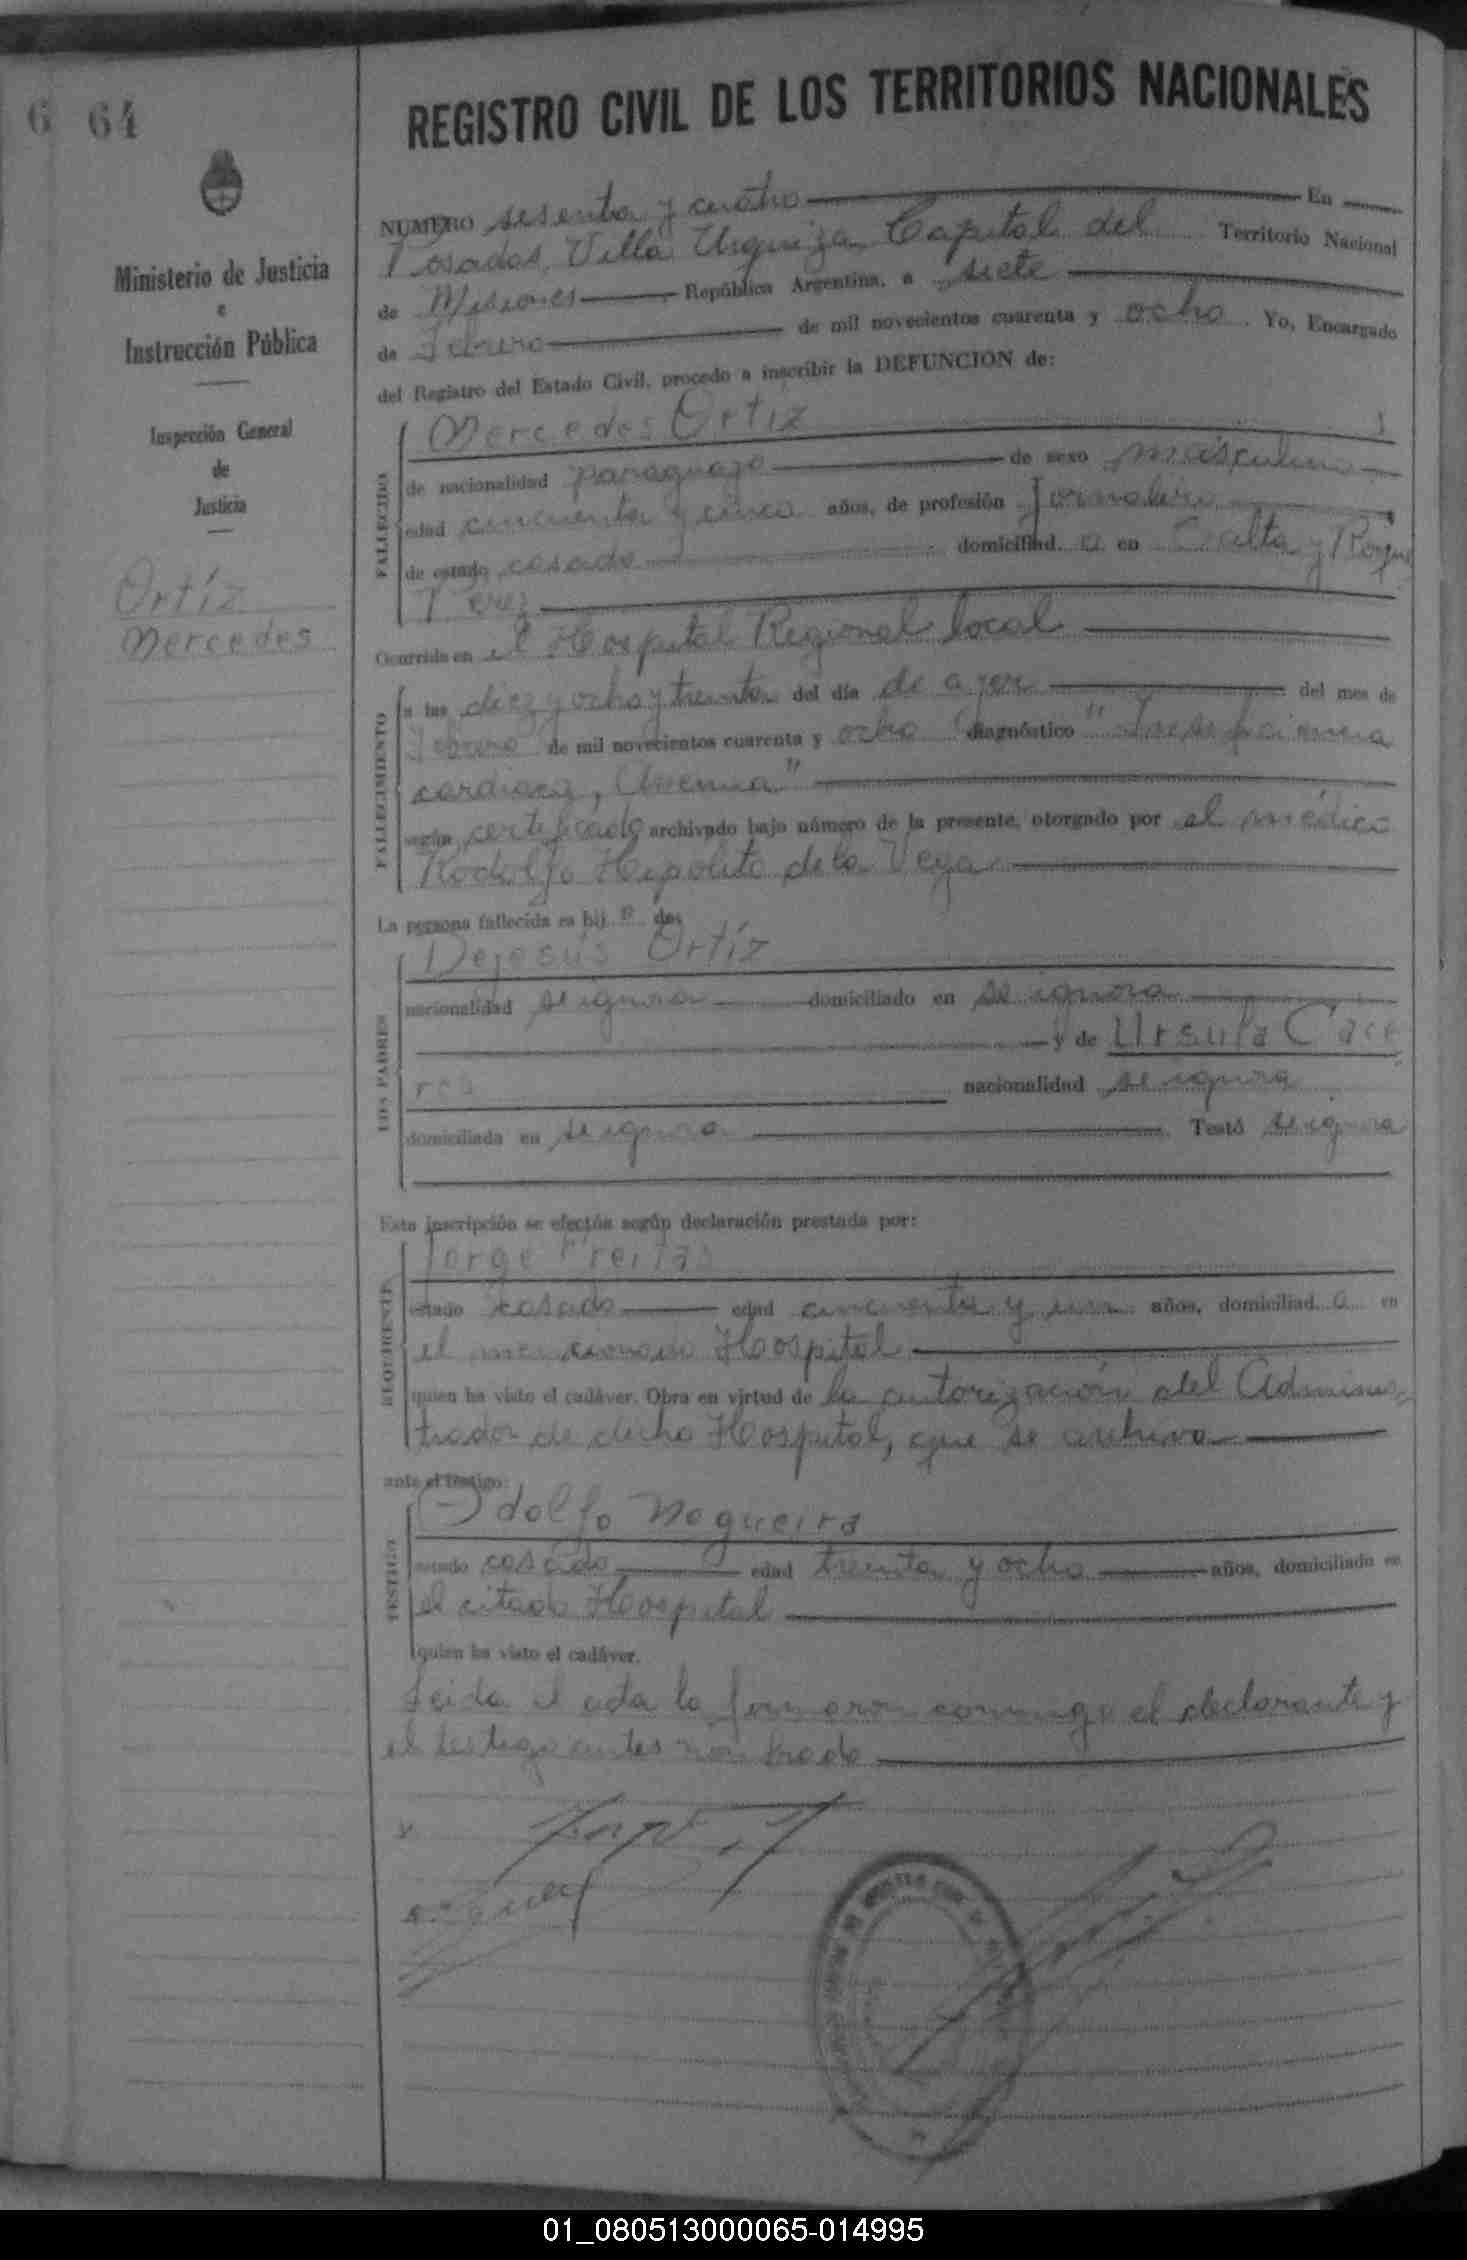 6 64
REGISTRO CIVIL DE LOS TERRITORIOS NACIONALES
Ministerio de Justicia
e
Instrucción Pública
Inspección General
de
Justicia
Ortíz
Mercedes
NUMERO sesenta y cuatro En
Posadas, Villa Urquiza, Capital del Territorio Nacional
de Misiones República Argentina, a siete
de Febrero de mil novecientos cuarenta y ocho. Yo, Encargado
del Registro del Estado Civil, procedo a inscribir la DEFUNCION de:
FALLECIDO
Mercedes Ortíz
de nacionalidad paraguayo de sexo masculino
edad cincuenta y cinco años, de profesión Jornalero
de estado casado domiciliad o en Salta y Roque
Perez
Ocurrida en el Hospital Regional local
FALLECIMIENTO
a las diez y ocho y treinta del día de ayer del mes de
Febrero de mil novecientos cuarenta y ocho diagnóstico "Insuficiencia
cardiaca, Anemia"
según certificado archivado bajo número de la presente, otorgado por el médico
Rodolfo Hipolito de la Vega
La persona fallecida es hij o de:
LOS PADRES
Dejesús Ortíz
nacionalidad se ignora domiciliado en se ignora
y de Ursula Cace
res nacionalidad se ignora
domiciliada en se ignora Testó se ignora
Esta inscripción se efectúa según declaración prestada por:
REQUIRENTE
Jorge Freitas
estado casado edad cincuenta y un años, domiciliad o en
el mencionado Hospital
quien ha visto el cadáver. Obra en virtud de la autorización del Adminis-
trador de dicho Hospital, que se archiva
ante el testigo:
TESTIGO
Odolfo Nogueira
estado casado edad treinta y ocho años, domiciliado en
el citado Hospital
quien ha visto el cadáver.
Leida el acta la firmaron conmigo el declarante y
el testigo antes nombrado
01_080513000065-014995